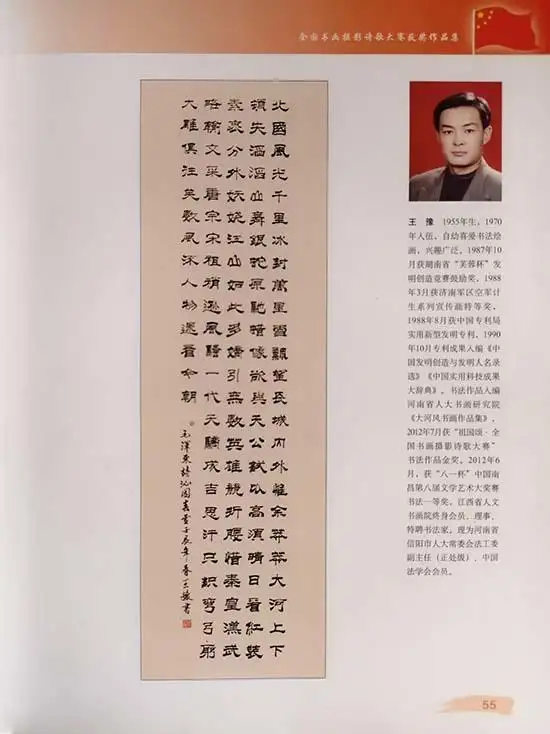 全国书画摄影诗歌大赛获奖作品集
北國風光千里冰封萬里雪飄望長城内外惟余莽莽大河上下
頓失滔滔山舞銀蛇原馳蠟像欲與天公試比高須晴日看紅裝
素裹分外妖嬈江山如此多嬌引無數英雄競折腰惜秦皇漢武
略輸文采唐宗宋祖稍遜風騷一代天驕成吉思汗只識彎弓射
大雕俱往矣數風流人物還看今朝
毛澤東詩沁園春雪壬辰年春王豫書
王 豫 1955年生，1970
年入伍，自幼喜爱书法绘
画，兴趣广泛。1987年10
月获湖南省“芙蓉杯”发
明创造竞赛鼓励奖，1988
年3月获济南军区空军计
生系列宣传画特等奖，
1988年8月获中国专利局
实用新型发明专利，1990
年10月专利成果入编《中
国发明创造与发明人名录
选》《中国实用科技成果
大辞典》。书法作品入编
河南省人大书画研究院
《大河风书画作品集》，
2012年7月获“祖国颂·全
国书画摄影诗歌大赛”
书法作品金奖。2012年6
月，获“八一杯”中国南
昌第八届文学艺术大奖赛
书法一等奖，江西省人文
书画院终身会员、理事、
特聘书法家。现为河南省
信阳市人大常委会法工委
副主任（正处级）、中国
法学会会员。
55